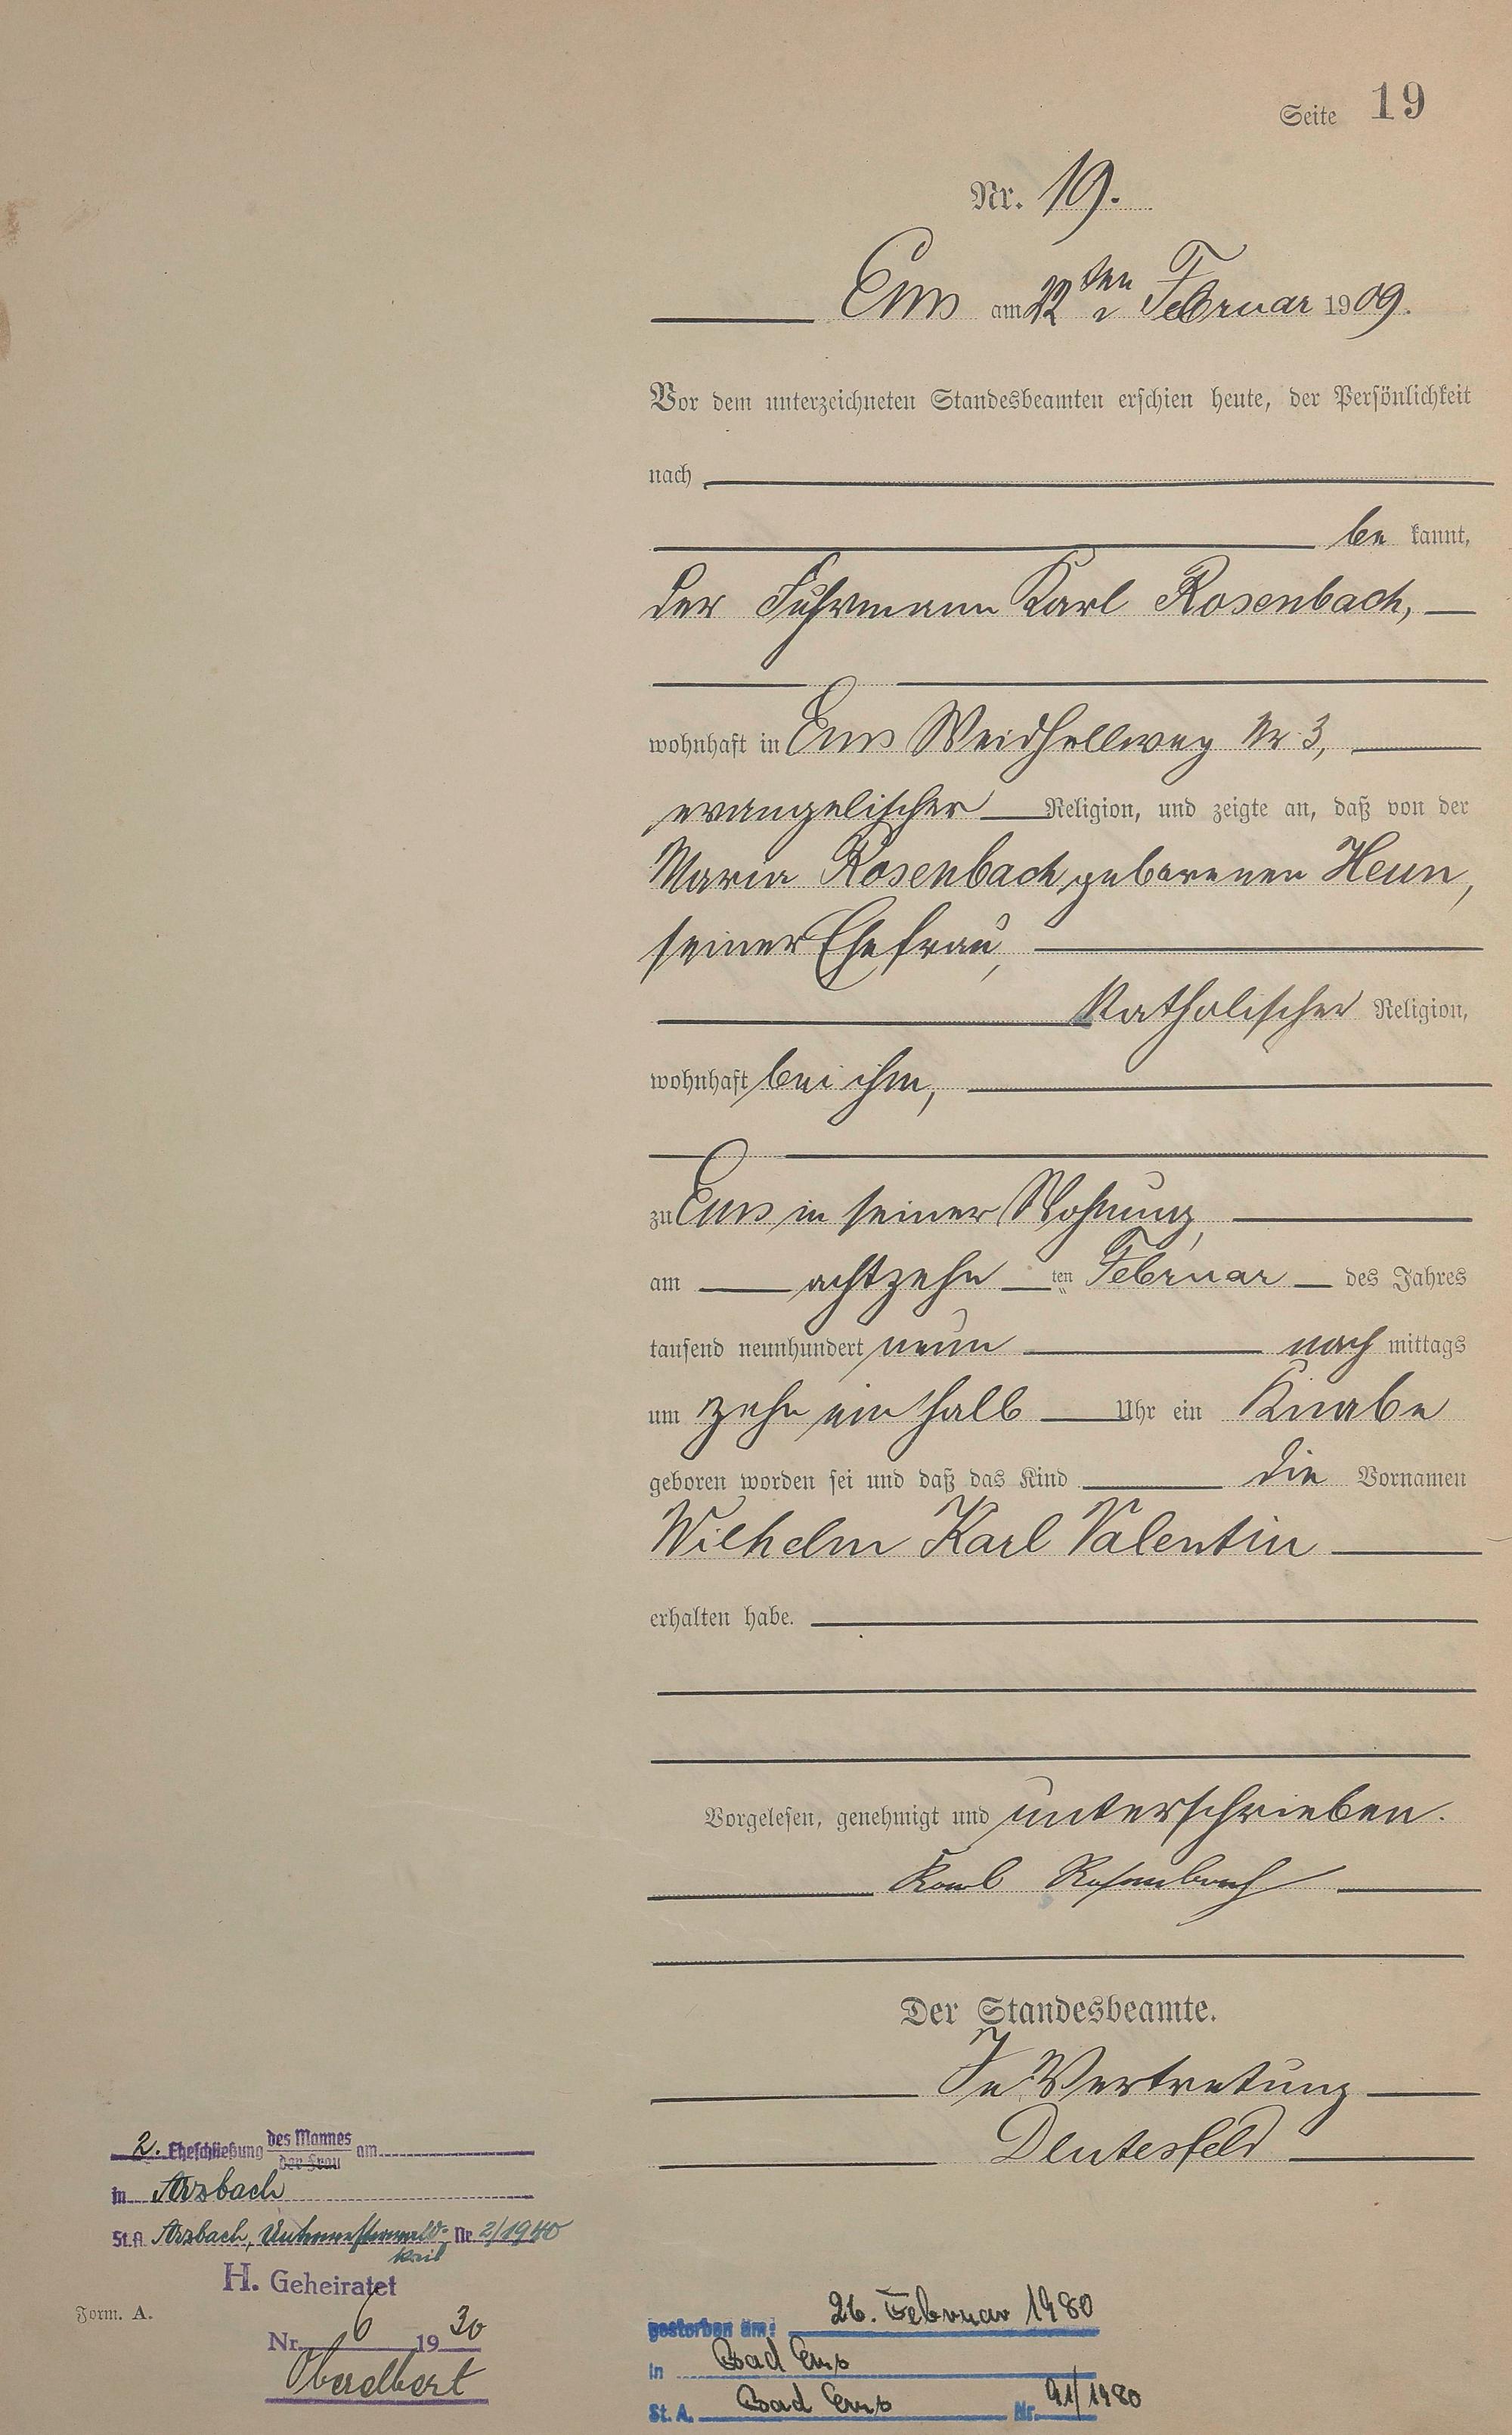 Seite 19
Nr. 19.
Ems am 22ten Februar 1909.
Vor dem unterzeichneten Standesbeamten erschien heute, der Persönlichkeit
nach
be kannt,
der Fuhrmann Karl Rosenbach,
wohnhaft in Ems Weidhellweg Nr 3,
evangelischer Religion, und zeigte an, daß von der
Maria Rosenbach geborenen Heun,
seiner Ehefrau,
katholischer Religion,
wohnhaft bei ihm,
zu Ems in seiner Wohnung,
am achtzehn ten Februar des Jahres
tausend neunhundert neun nach mittags
um zehn ein halb Uhr ein Knabe
geboren worden sei und daß das Kind die Vornamen
Wilhelm Karl Valentin
erhalten habe.
Vorgelesen, genehmigt und unterschrieben.
Karl Rosenbach
Der Standesbeamte.
In Vertretung
2. Eheschließung des Mannes der Frau am
in Arzbach
St.A. Arzbach, Unterwesterwald- Nr. 2/1940
kreis
H. Geheiratet
Form. A.
Nr. 6 1930
Oberelbert
gestorben am: 26. Februar 1980
in Bad Ems
St. A. Bad Ems Nr. 91/1980